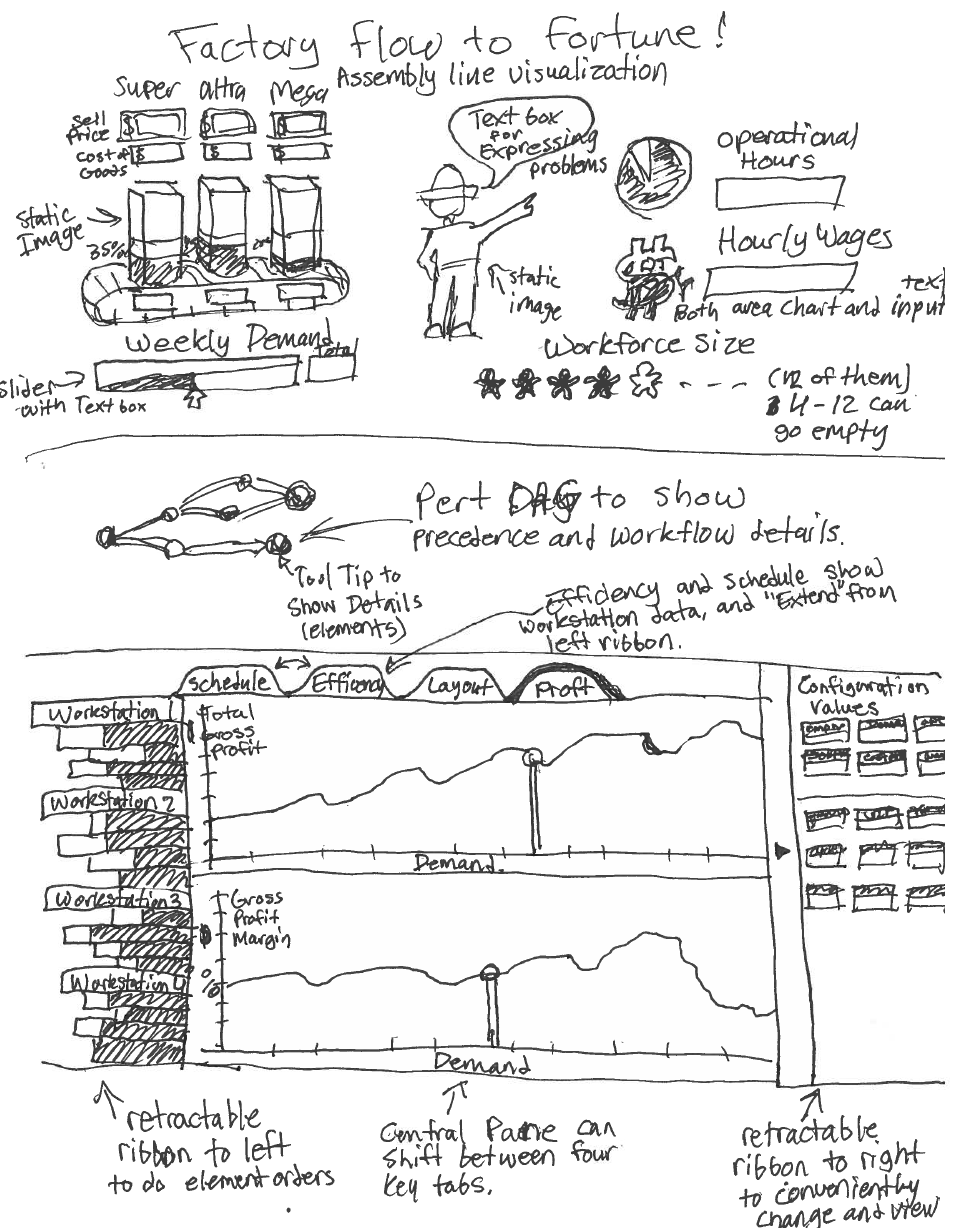 Factory flow to fortune!
Assembly line visualization
Super Ultra Mega
Sell
Price
$ $ $
Cost of
Goods
$ $ $
Static
Image
35%
Weekly Demand
total
Slider
with Text box
Text box
for
Expressing
problems
static
image
Operational
Hours
Hourly Wages
text
Both area Chart and input
Workforce Size
(12 of them)
4-12 can
go empty
Pert DAG to show
precedence and workflow details.
Tool Tip to
Show Details
(elements)
Efficiency and schedule show
workstation data, and "Extend" from
left ribbon.
Schedule Efficency Layout Proft
Workstation 1
Workstation 2
Workstation 3
Workstation 4
Total
Gross
Profit
Demand.
Gross
Profit
Margin
%
Demand
Configuration
Values
retractable
ribbon to left
to do element orders
Central Pane can
shift between four
key tabs.
retractable
ribbon to right
to conveniently
change and view